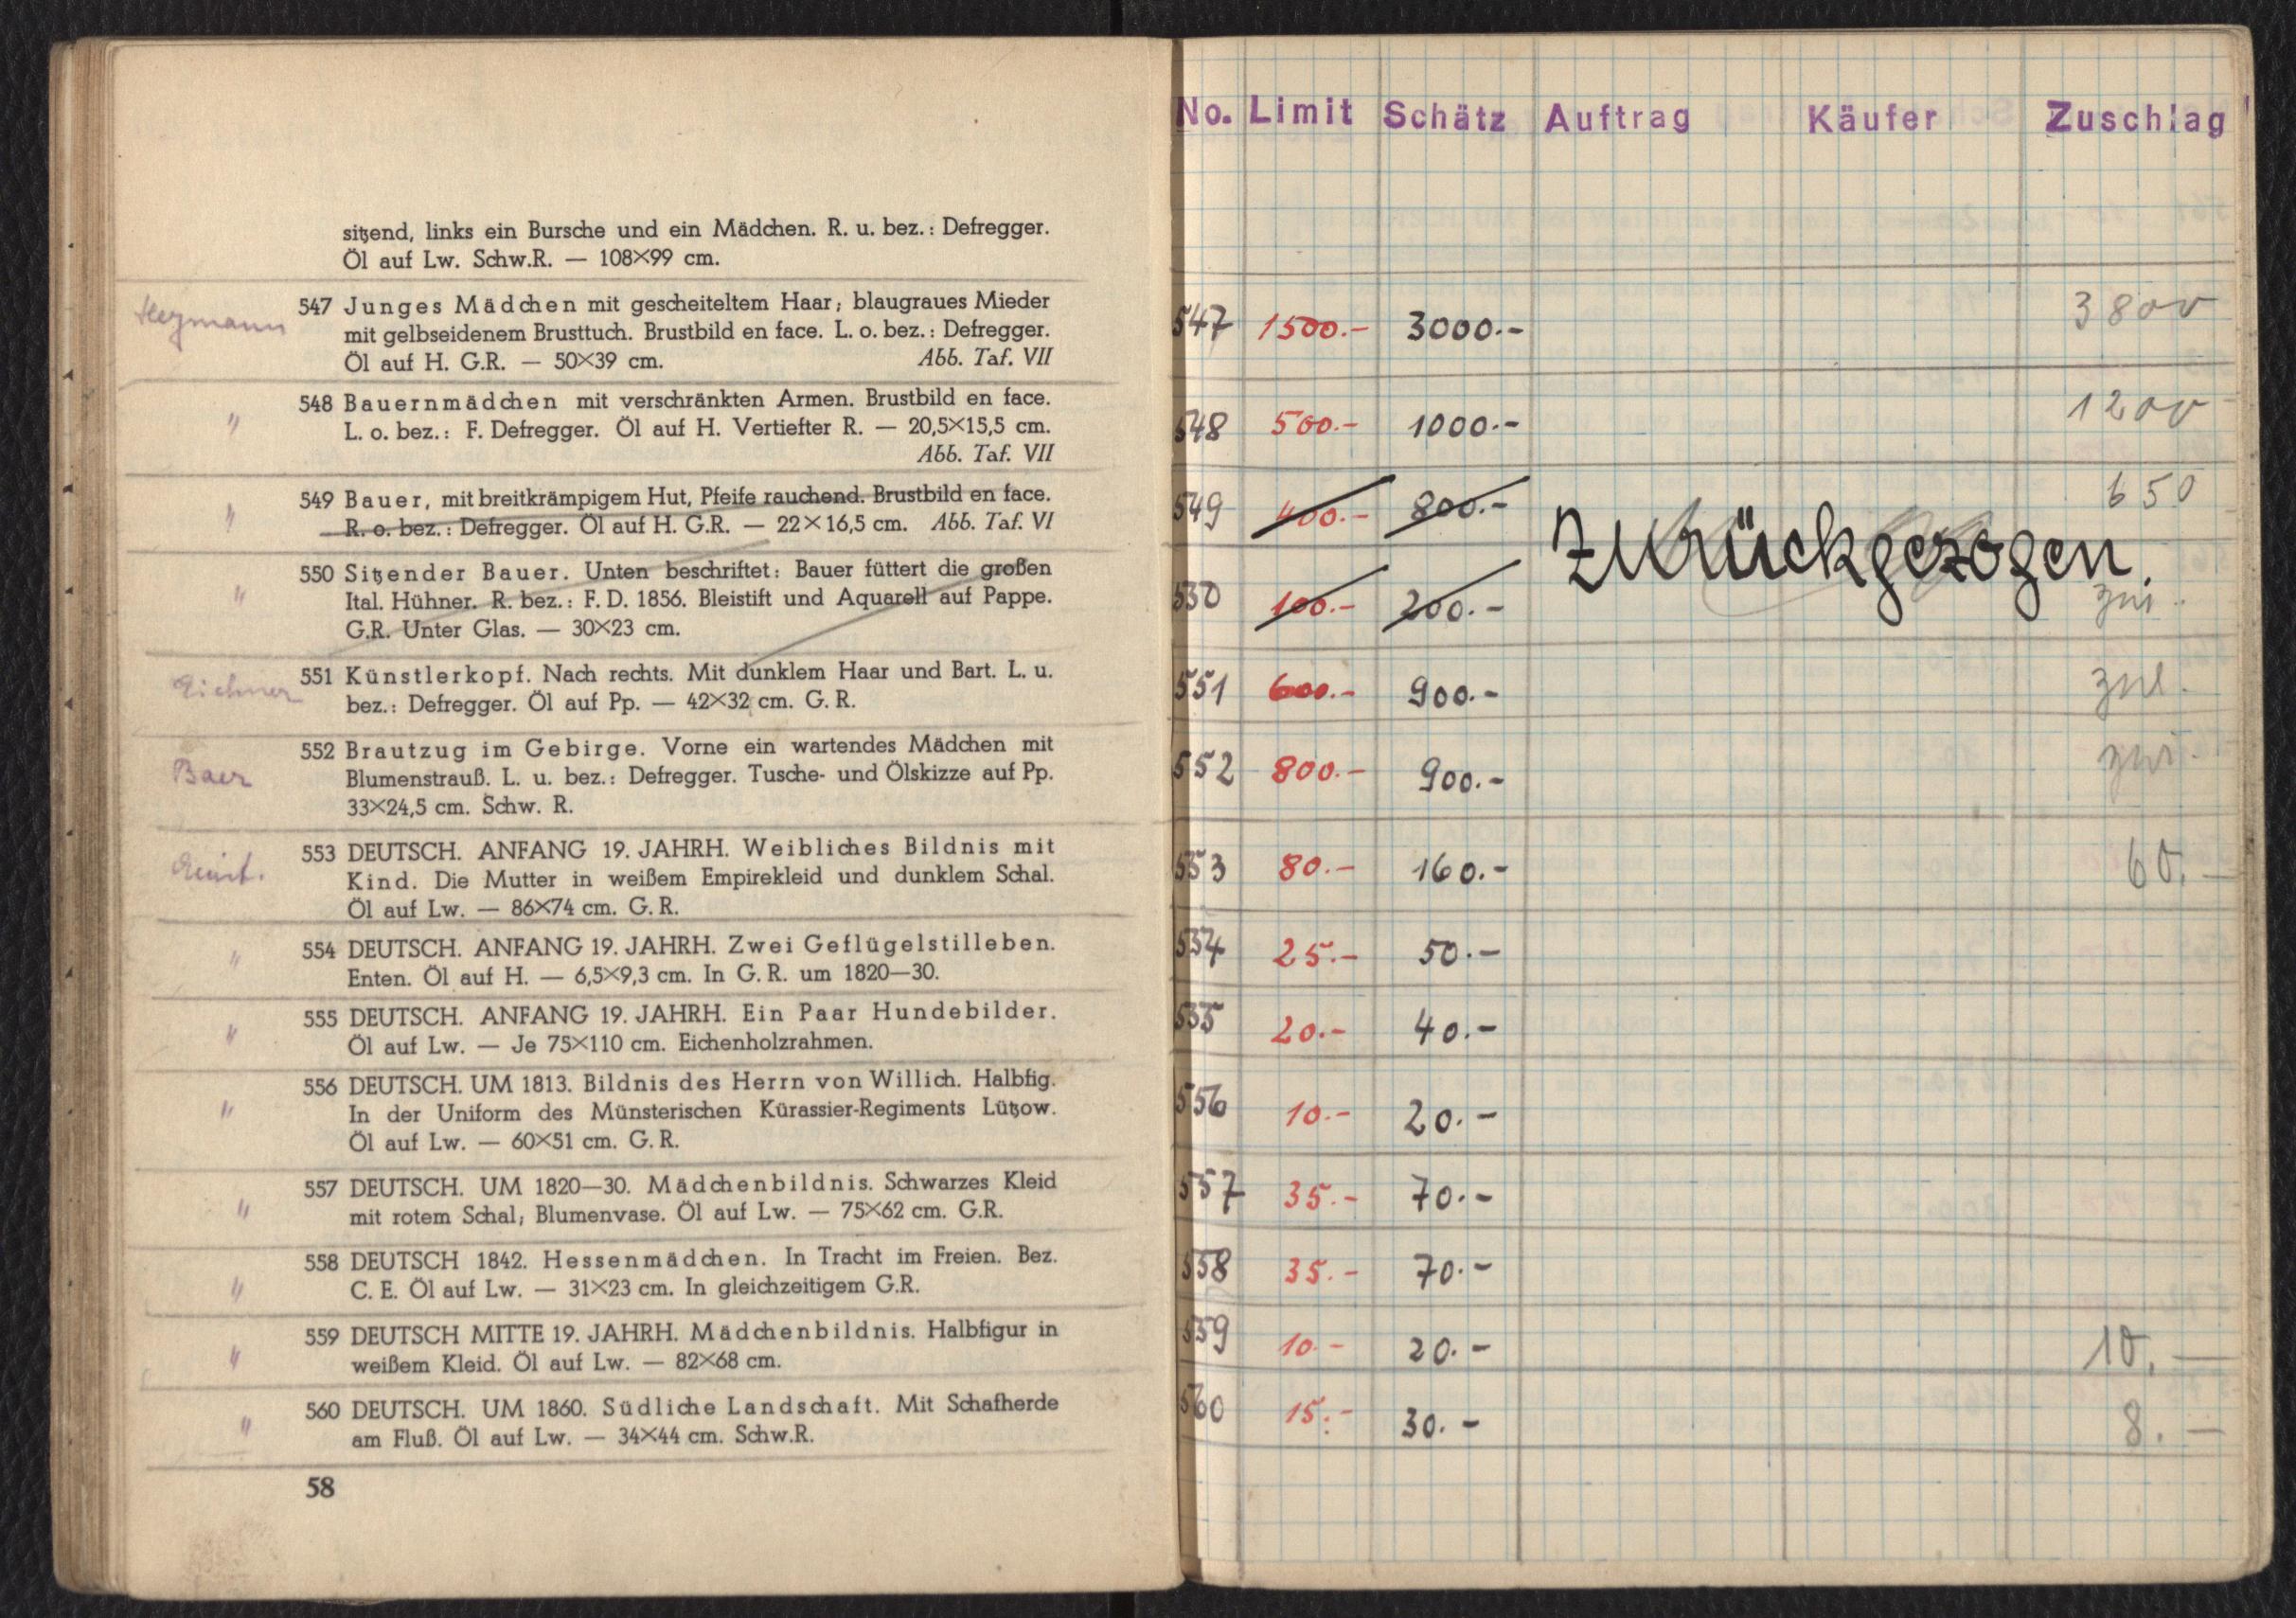 sitzend, links ein Bursche und ein Mädchen. R. u. bez.: Defregger.
Öl auf Lw. Schw.R. — 108×99 cm.
Heymann
547 Junges Mädchen mit gescheiteltem Haar; blaugraues Mieder
mit gelbseidenem Brusttuch. Brustbild en face. L. o. bez.: Defregger.
Öl auf H. G.R. — 50×39 cm. Abb. Taf. VII
" 548 Bauernmädchen mit verschränkten Armen. Brustbild en face.
L. o. bez.: F. Defregger. Öl auf H. Vertiefter R. — 20,5×15,5 cm.
Abb. Taf. VII
" 549 Bauer, mit breitkrämpigem Hut, Pfeife rauchend. Brustbild en face.
R. o. bez.: Defregger. Öl auf H. G.R. — 22×16,5 cm. Abb. Taf. VI
" 550 Sitzender Bauer. Unten beschriftet: Bauer füttert die großen
Ital. Hühner. R. bez.: F. D. 1856. Bleistift und Aquarell auf Pappe.
G.R. Unter Glas. — 30×23 cm.
551 Künstlerkopf. Nach rechts. Mit dunklem Haar und Bart. L. u.
bez.: Defregger. Öl auf Pp. — 42×32 cm. G. R.
552 Brautzug im Gebirge. Vorne ein wartendes Mädchen mit
Baer Blumenstrauß. L. u. bez.: Defregger. Tusche- und Ölskizze auf Pp.
33×24,5 cm. Schw. R.
553 DEUTSCH. ANFANG 19. JAHRH. Weibliches Bildnis mit
Kind. Die Mutter in weißem Empirekleid und dunklem Schal.
Öl auf Lw. — 86×74 cm. G. R.
" 554 DEUTSCH. ANFANG 19. JAHRH. Zwei Geflügelstilleben.
Enten. Öl auf H. — 6,5×9,3 cm. In G. R. um 1820—30.
" 555 DEUTSCH. ANFANG 19. JAHRH. Ein Paar Hundebilder.
Öl auf Lw. — Je 75×110 cm. Eichenholzrahmen.
" 556 DEUTSCH. UM 1813. Bildnis des Herrn von Willich. Halbfig.
In der Uniform des Münsterischen Kürassier-Regiments Lützow.
Öl auf Lw. — 60×51 cm. G. R.
" 557 DEUTSCH. UM 1820—30. Mädchenbildnis. Schwarzes Kleid
mit rotem Schal; Blumenvase. Öl auf Lw. — 75×62 cm. G.R.
" 558 DEUTSCH 1842. Hessenmädchen. In Tracht im Freien. Bez.
C. E. Öl auf Lw. — 31×23 cm. In gleichzeitigem G.R.
" 559 DEUTSCH MITTE 19. JAHRH. Mädchenbildnis. Halbfigur in
weißem Kleid. Öl auf Lw. — 82×68 cm.
" 560 DEUTSCH. UM 1860. Südliche Landschaft. Mit Schafherde
am Fluß. Öl auf Lw. — 34×44 cm. Schw.R.
58
No. Limit Schätz Auftrag Käufer Zuschlag
547 1500.- 3000.- 3800
548 500.- 1000.- 1200
549 400.- 800.- 650
Zurückgezogen.
550 100.- 200.-
551 600.- 900.-
552 800.- 900.-
553 80.- 160.- 60.—
554 25.- 50.-
555 20.- 40.-
556 10.- 20.-
557 35.- 70.-
558 35.- 70.-
559 10.- 20.- 10.—
560 15.- 30.- 8.—